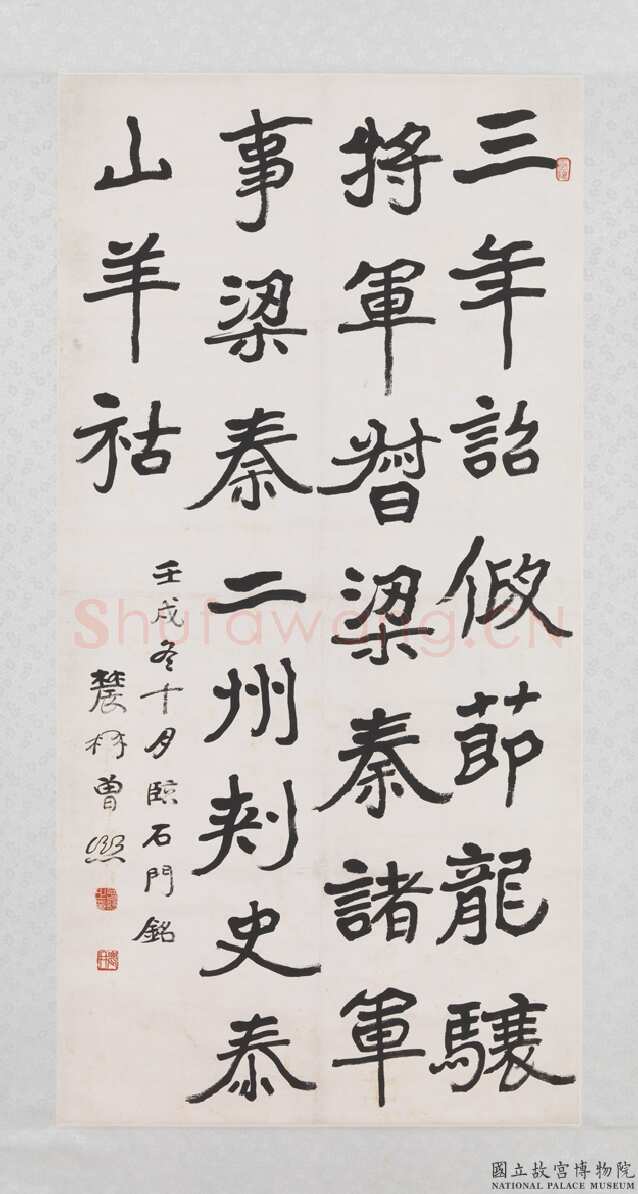 三年詔假節龍驤
將軍督梁秦諸軍
事梁秦二州刺史泰
山羊祉
壬戌冬十月臨石門銘
農髯曾熙
Shufawang.CN
國立故宮博物院
NATIONAL PALACE MUSEUM